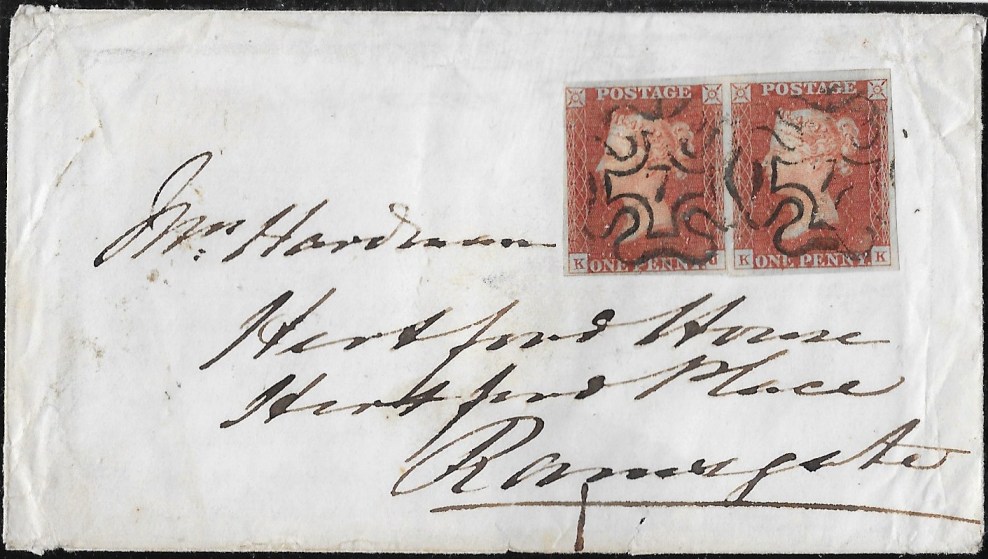 POSTAGE POSTAGE
7 7
K J K K
ONE PENNY ONE PENNY
Mrs Hardman
Hertford House
Hertford Place
Ramsgate